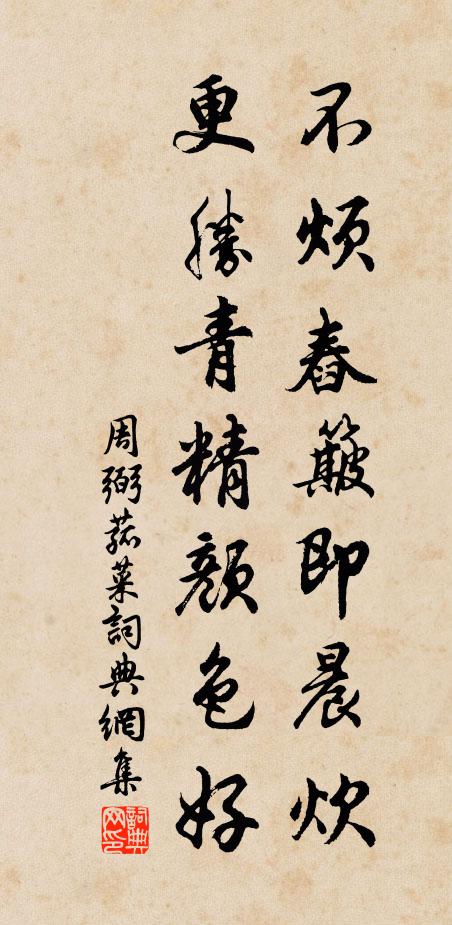 不煩舂簸即晨炊
更勝青精顏色好
周弼菰菜詞典網集
詞典网印